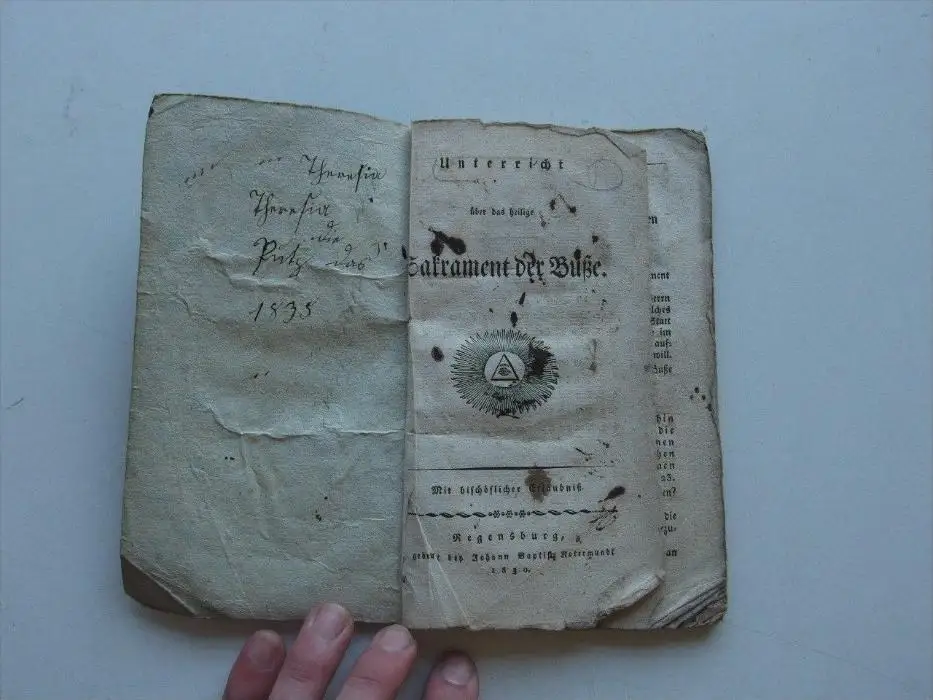 Theresia
Theresia
die
Pütz das
1835
Unterricht
über das heilige
Sakrament der Buße.
Mit bischöflicher Erlaubniß
Regensburg,
gedruckt bey Johann Baptist Rotermundt
en
ment
errn
lches
Statt
im
auf:
will.
Buße
hin
die
nen
hen
nen
23.
en?
die
rzu-
an